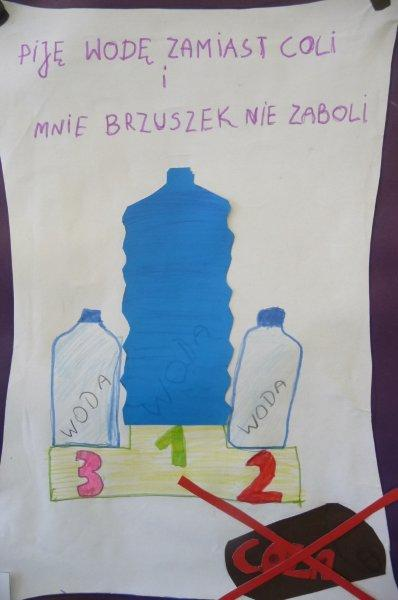 PIJĘ WODĘ ZAMIAST COLI
i
MNIE BRZUSZEK NIE ZABOLI
WODA
WODA
WODA
3
1
2
COLA